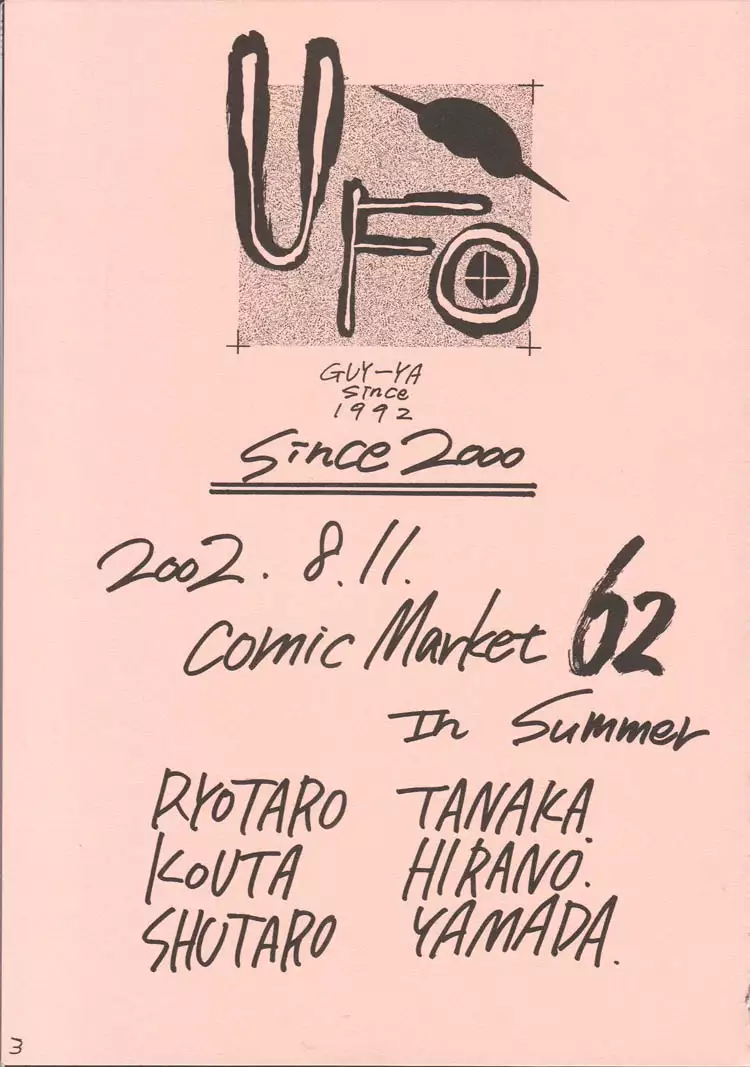 UFO
GUY-YA
since
1992
Since 2000
2002. 8.11.
Comic Market 62
In Summer
RYOTARO TANAKA.
KOUTA HIRANO.
SHUTARO YAMADA.
3